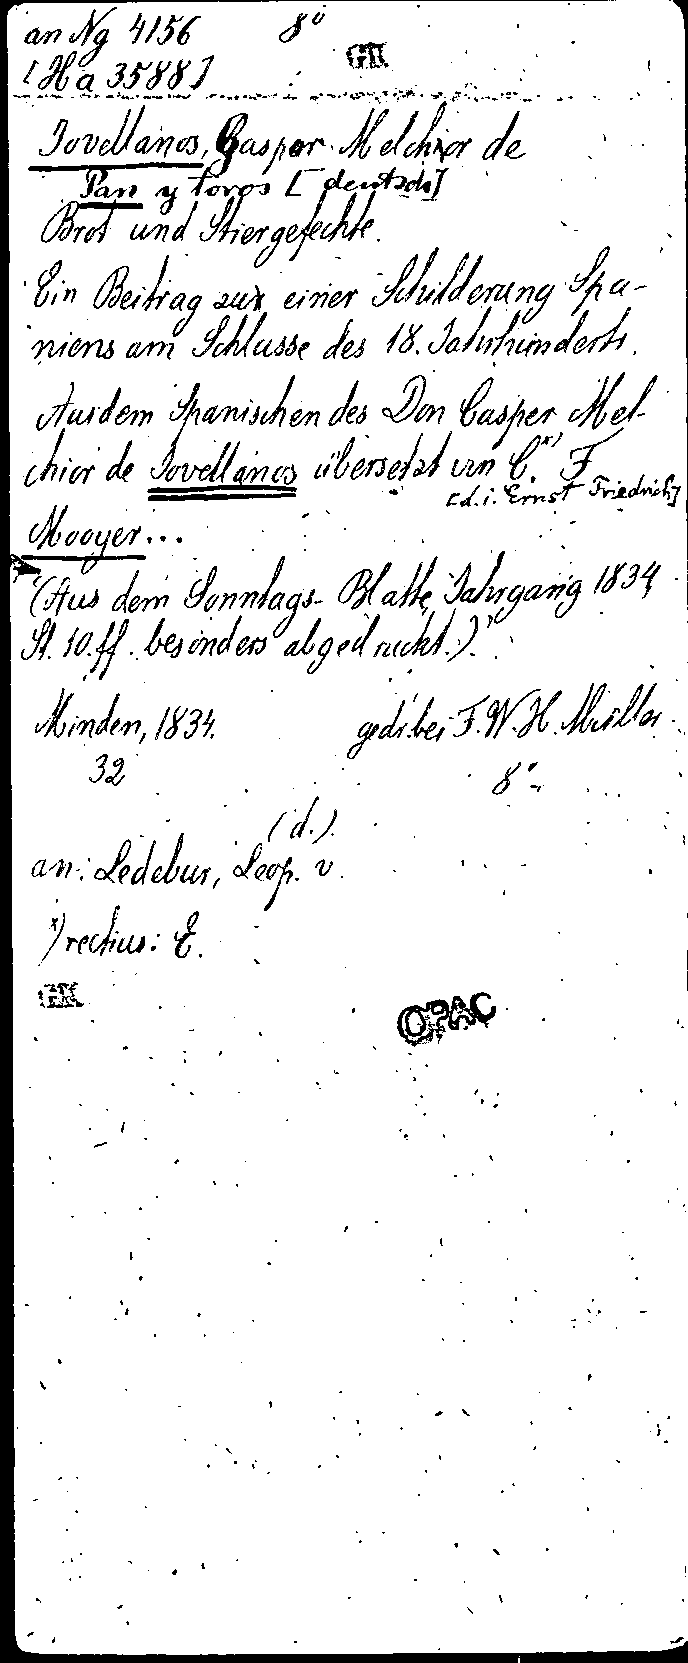 an Ng 4156 8°
[Ha 3588]
GK
Jovellanos, Gaspar Melchior de
Pan y toros [deutsch]
Brot und Stiergefechte.
Ein Beitrag zur einer Schilderung Spa-
niens am Schlusse des 18. Jahrhunderts.
Aus dem Spanischen des Don Casper Mel-
chior de Jovellanos übersetzt von C.ˣ⁾ F.
[d.i. Ernst Friedrich]
Mooyer...
(Aus dem Sonntags-Blatte, Jahrgang 1834,
St. 10.ff. besonders abgedruckt.)
Minden, 1834. gedr. bei F.W.H. Müller.
32 8°-
(d.)
an: Ledebur, Leop. v.
ˣ⁾ rectius: E.
GK
OPAC